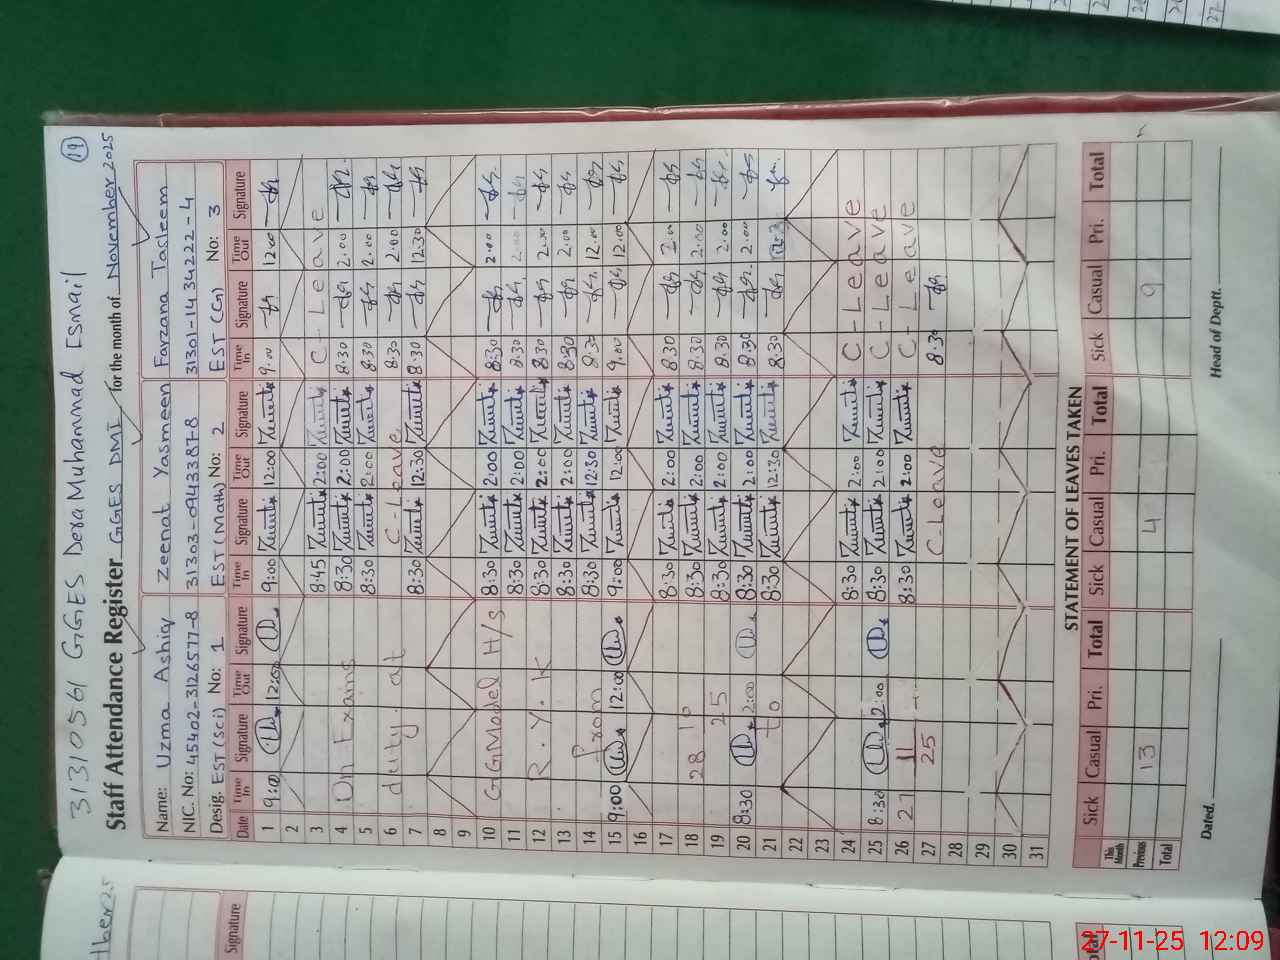 31310561 GGES Dera Muhammad Ismail
19
Staff Attendance Register GGES DMI for the month of November 2025
Name: Uzma Ashiq Zeenat Yasmeen Farzana Tasleem
NIC. No: 45402-3126577-8 31303-0943387-8 31301-1434222-4
Desig. EST (Sci) No: 1 EST (Math) No: 2 EST (G) No: 3
Date Time In Signature Time Out Signature Time In Signature Time Out Signature Time In Signature Time Out Signature
1 9:00 12:00 9:00 12:00 9.00 12.00
2
3 8:45 2:00 C-Leave
4 On Exams 8:30 2:00 8.30 2.00
5 8:30 2:00 8.30 2.00
6 duty at C-Leave 8.30 2.00
7 8:30 12:30 8.30 12.30
8
9
10 GGModel H/S 8:30 2:00 8:30 2.00
11 8:30 2:00 8.30 2.00
12 R.Y.K 8:30 2:00 8.30 2.00
13 8:30 2:00 8:30 2.00
14 From 8:30 12:30 8.30 12.00
15 9:00 12:00 9:00 12:00 9.00 12.00
16
17 8:30 2:00 8.30 2.00
18 28 10 8:30 2:00 8.30 2.00
19 25 8:30 2:00 8.30 2.00
20 8:30 2:00 8:30 2:00 8.30 2.00
21 to 8:30 12:30 8.30
22
23
24 8:30 2:00 C-Leave
25 8:30 2:00 8:30 2:00 C-Leave
26 27 11 8:30 2:00 C-Leave
27 25 C Leave 8.30
28
29
30
31
STATEMENT OF LEAVES TAKEN
Sick Casual Pri. Total Sick Casual Pri. Total Sick Casual Pri. Total
This Month
Previous 13 4 9
Total
Dated. Head of Deptt.
Signature
Total
27-11-25 12:09